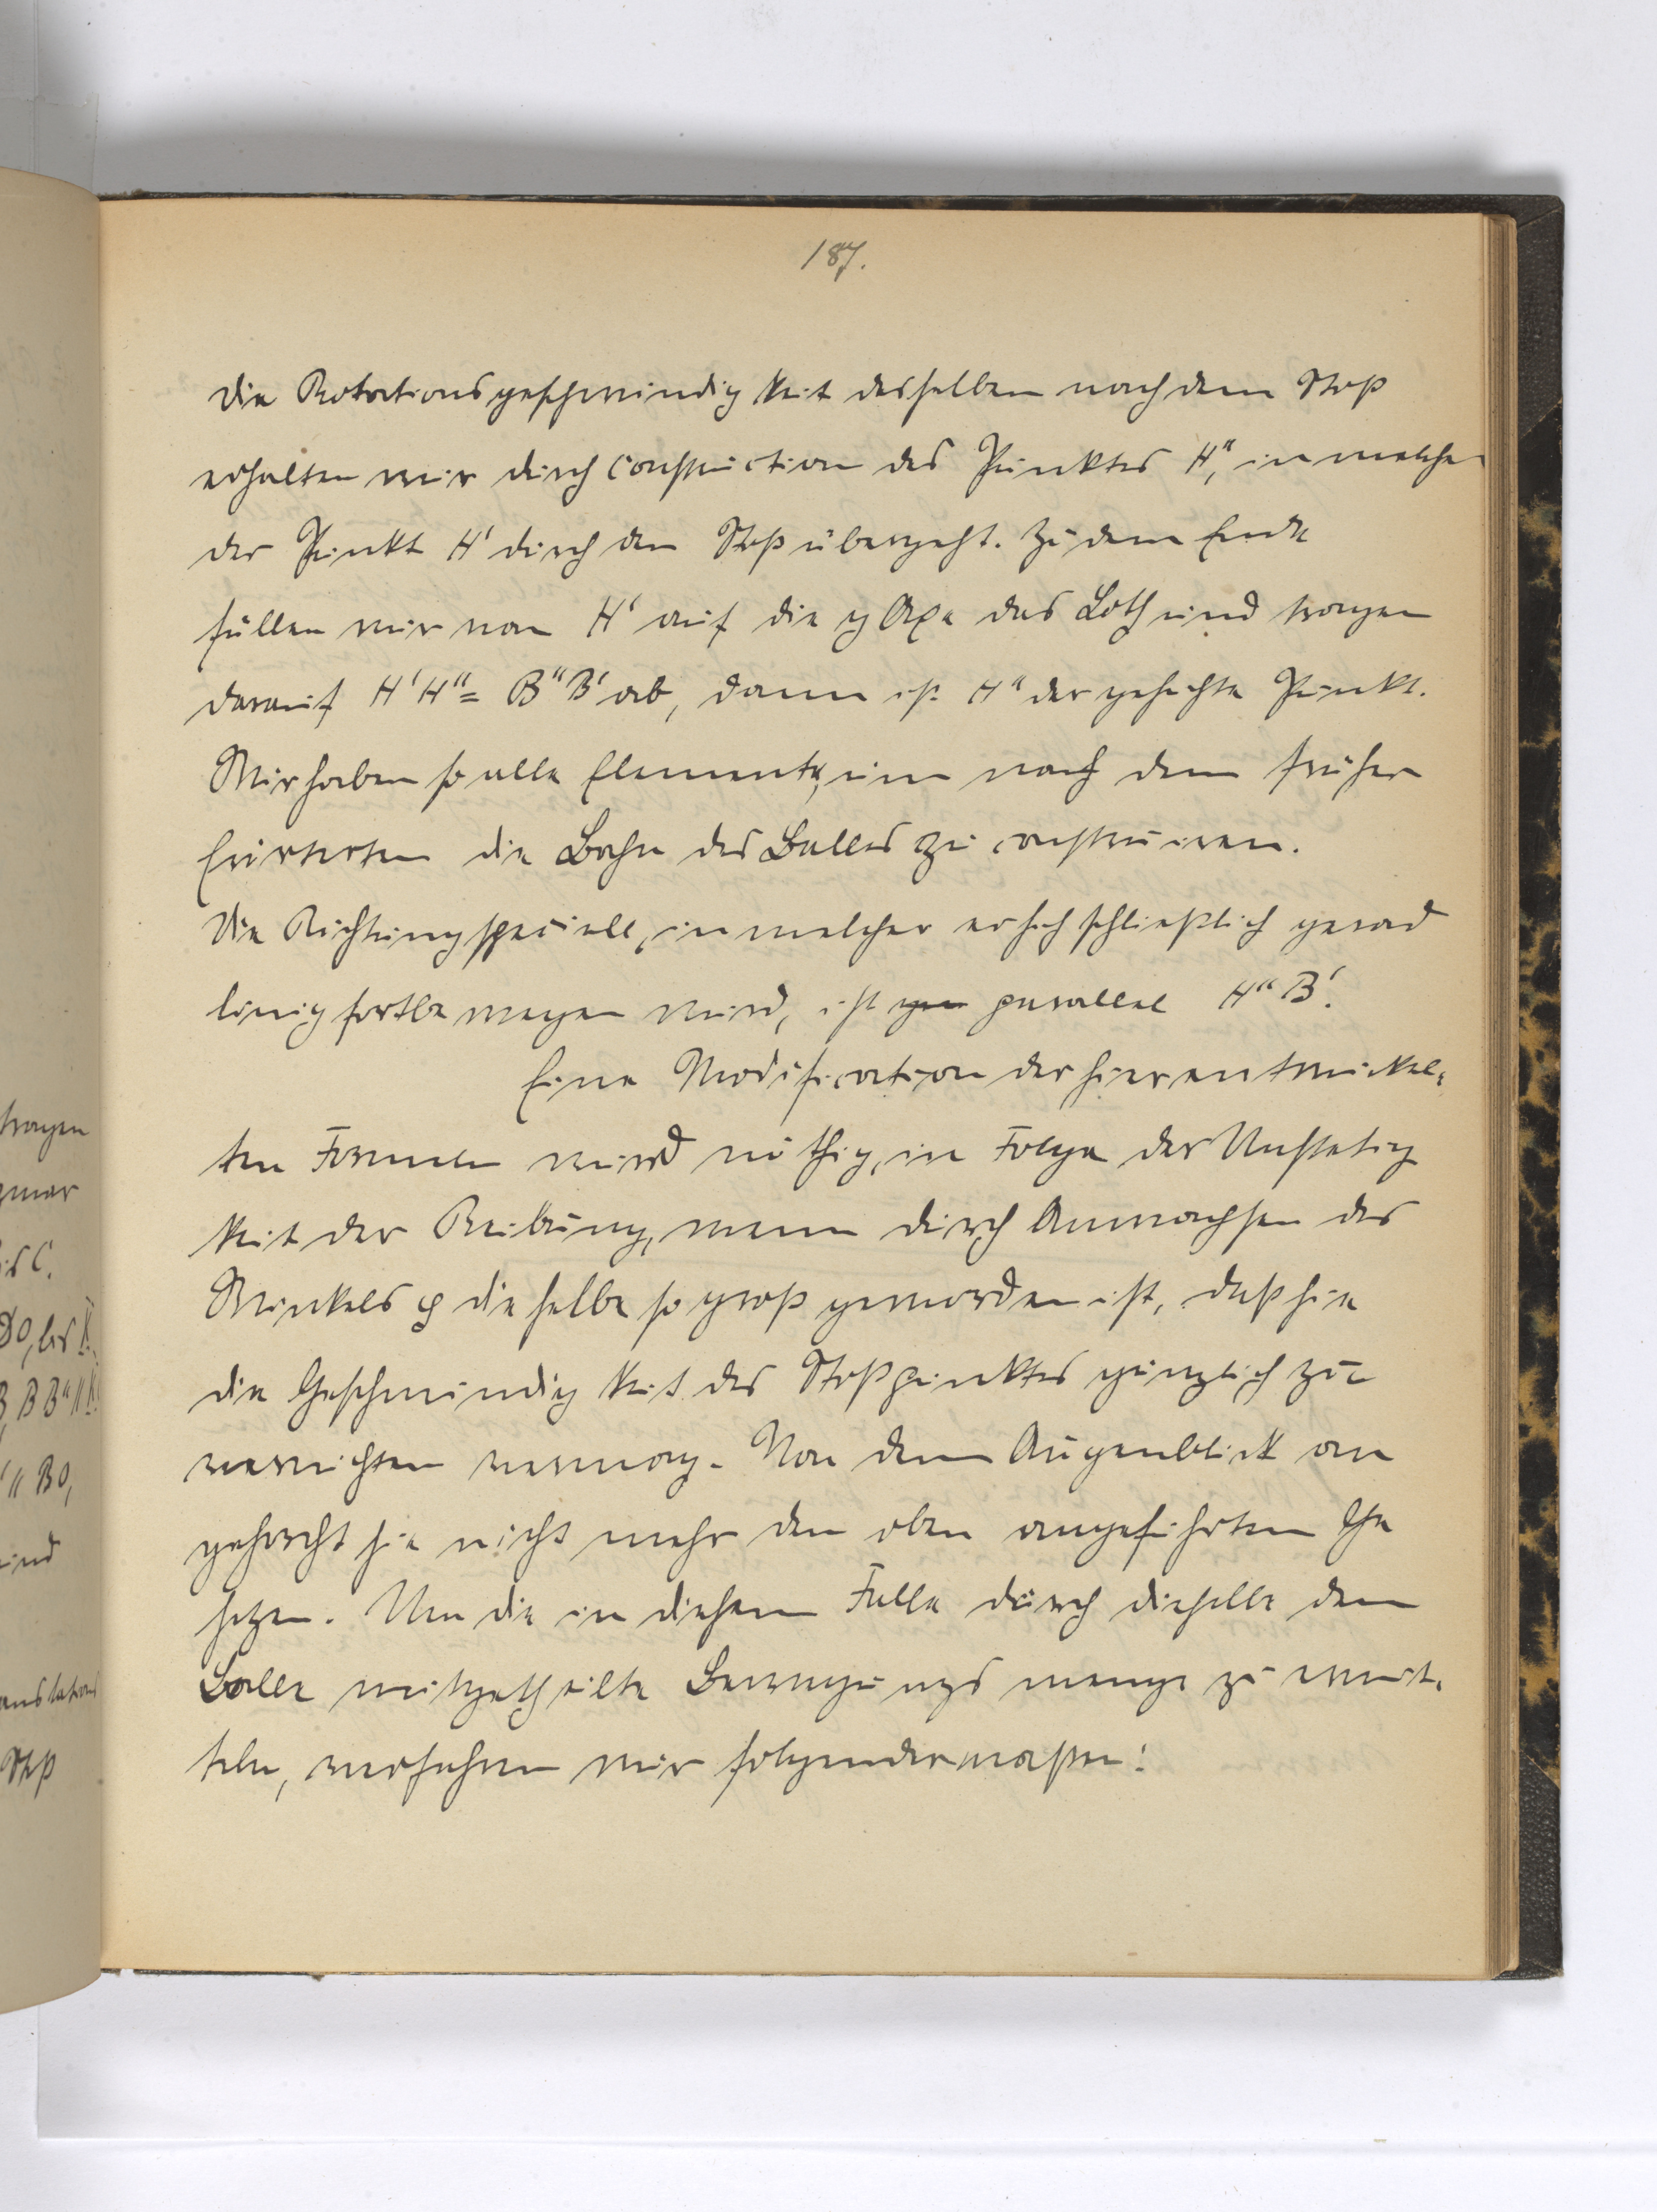 187.
Die Rotationsgeschwindigkeit desselben nach dem Stoß
erhalten wir durch Construction des Punktes H", in welchen
der Punkt H' durch den Stoß übergeht. Zu dem Ende
fällen wir von H' auf die y Axe das Loth und tragen
darauf H'H" = B"B' ab, dann ist H" der gesuchte Punkt.
Wir haben so alle Elemente, um nach dem früher
Erörterten die Bahn des Balles zu construiren.
Die Richtung speciell, in welcher er sich schließlich gerad
linig fortbewegen wird, ist parallel H"B'.
Eine Modification der hier entwickel-
ten Formeln wird nöthig, in Folge der Unstetig
keit der Reibung, wenn durch Anwachsen des
Winkels φ dieselbe so groß geworden ist, daß sie
die Geschwindigkeit des Stoßpunktes gänzlich zu
vernichten vermag. Von dem Augenblick an
gehorcht sie nicht mehr den oben angeführten Ge
setzen. Um die in diesem Falle durch dieselbe dem
Balle mitgetheilte Bewegungsmenge zu ermit-
teln, verfahren wir folgendermaßen:
tragen
zwar
is C.
DO, bis K.
B, BB" ||
" BO,
und
anslations
Stoß